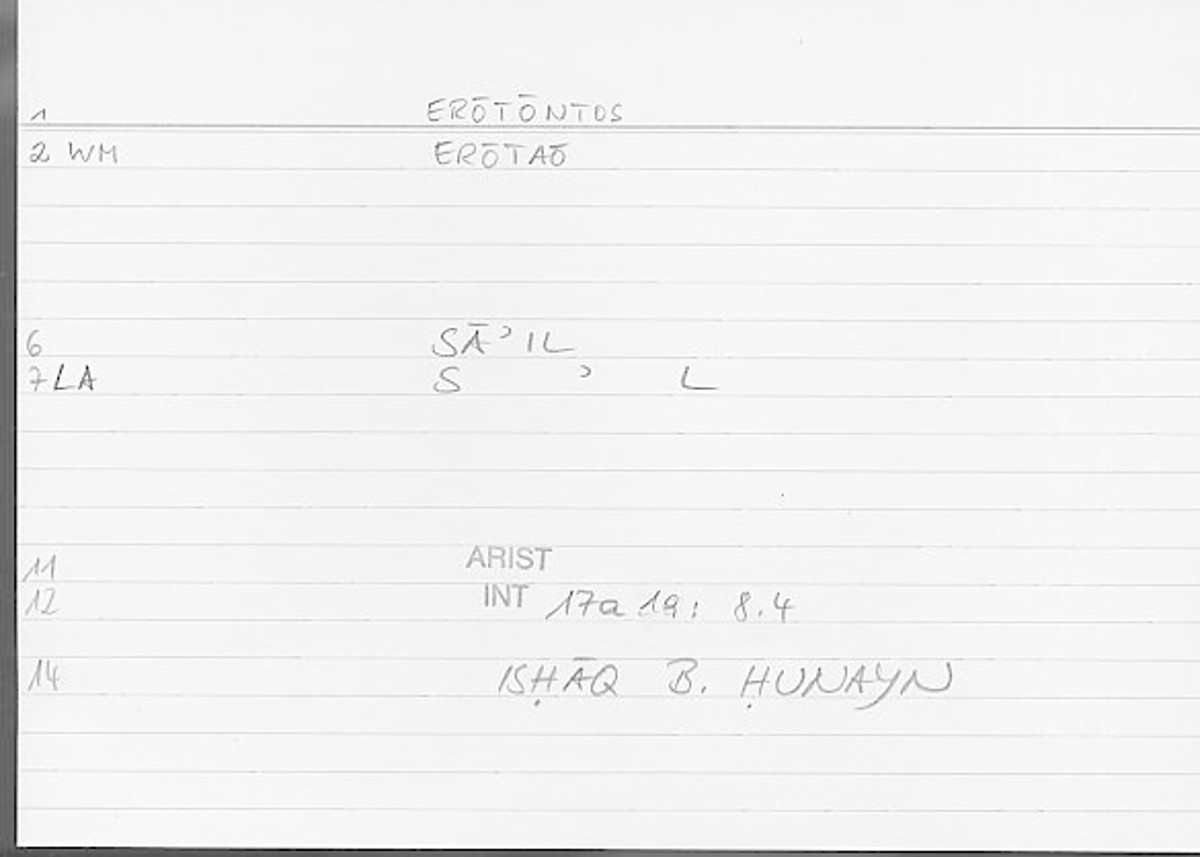 1 ERŌTŌNTOS
2 WM ERŌTAŌ
6 SĀʾIL
7 LA S ʾ L
11 ARIST
12 INT 17a 19: 8.4
14 ISḤĀQ B. ḤUNAYN